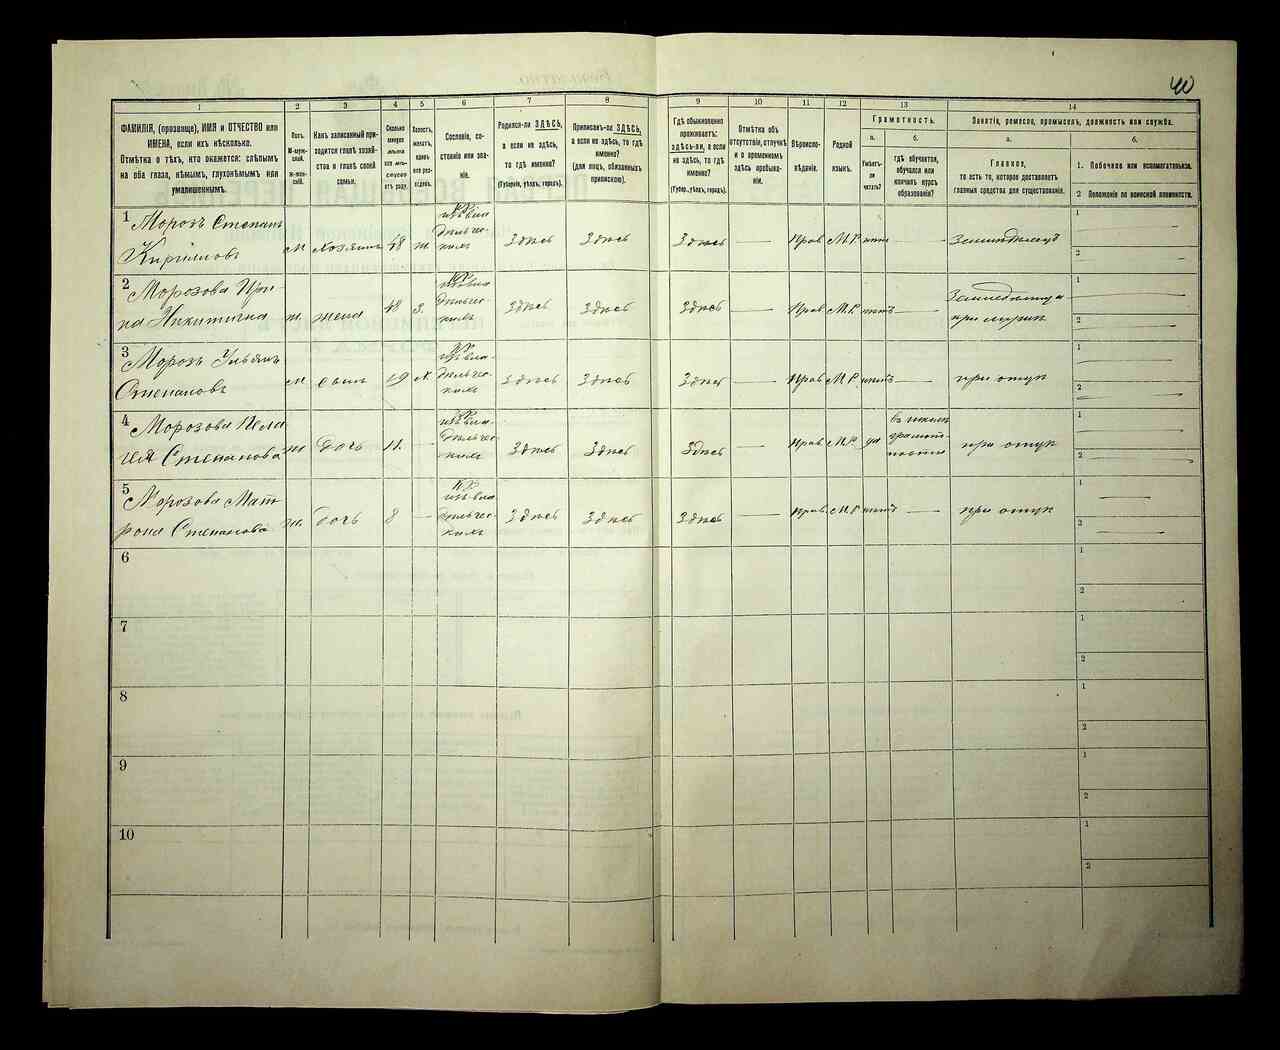 40
1 2 3 4 5 6 7 8 9 10 11 12 13 14
ФАМИЛІЯ, (прозвище), ИМЯ и ОТЧЕСТВО или
ИМЕНА, если ихъ нѣсколько.
Отмѣтка о тѣхъ, кто окажется: слѣпымъ
на оба глаза, нѣмымъ, глухонѣмымъ или
умалишеннымъ.
Полъ.
М-мужской.
Ж-женскій.
Какъ записанный при-
ходится главѣ хозяй-
ства и главѣ своей
семьи.
Сколько
минуло
лѣтъ
или мѣ-
сяцевъ
отъ роду.
Холостъ,
женатъ,
вдовъ
или раз-
веденъ.
Сословіе, со-
стояніе или зва-
ніе.
Родился-ли ЗДѢСЬ,
а если не здѣсь,
то гдѣ именно?
(Губернія, уѣздъ, городъ).
Приписанъ-ли ЗДѢСЬ,
а если не здѣсь, то гдѣ
именно?
(для лицъ, обязанныхъ
припискою).
Гдѣ обыкновенно
проживаетъ:
здѣсь-ли, а если
не здѣсь, то гдѣ
именно?
(Губер., уѣздъ, городъ).
Отмѣтка объ
отсутствіи, отлучкѣ
и о временномъ
здѣсь пребыва-
ніи.
Вѣроиспо-
вѣданіе.
Родной
языкъ.
Грамотность.
а. б.
Умѣетъ-
ли
читать?
гдѣ обучается,
обучался или
кончилъ курсъ
образованія?
Занятіе, ремесло, промыселъ, должность или служба.
а. б.
Главное,
то есть то, которое доставляетъ
главныя средства для существованія.
1. Побочное или вспомогательное.
2 Положеніе по воинской повинности.
1 Морозъ Степанъ
Кириловъ
м хозяинъ 48 ж. кр. изъ вла дѣльчес- кихъ Здѣсь Здѣсь Здѣсь — Прав М.Р. нѣтъ — Земледѣлецъ 1 2
2 Морозова Ири-
на Никитична
ж. жена 48 З. кр. Здѣсь Здѣсь Здѣсь — Прав М.Р. нѣтъ — при мужѣ 1 2
3 Морозъ Ульянъ
Степановъ
м сынъ 19 Здѣсь Здѣсь Здѣсь — Прав М.Р. нѣтъ — при отцѣ 1 2
4 Морозова Пела
гея Степанова
ж дочь 11. — Здѣсь Здѣсь Здѣсь — Прав М.Р. да при отцѣ 1 2
5 Морозова Мат
рона Степанова
ж. дочь 8 — Здѣсь Здѣсь Здѣсь — Прав М.Р. нѣтъ — при отцѣ 1 2
6 1 2
7 1 2
8 1 2
9 1 2
10 1 2